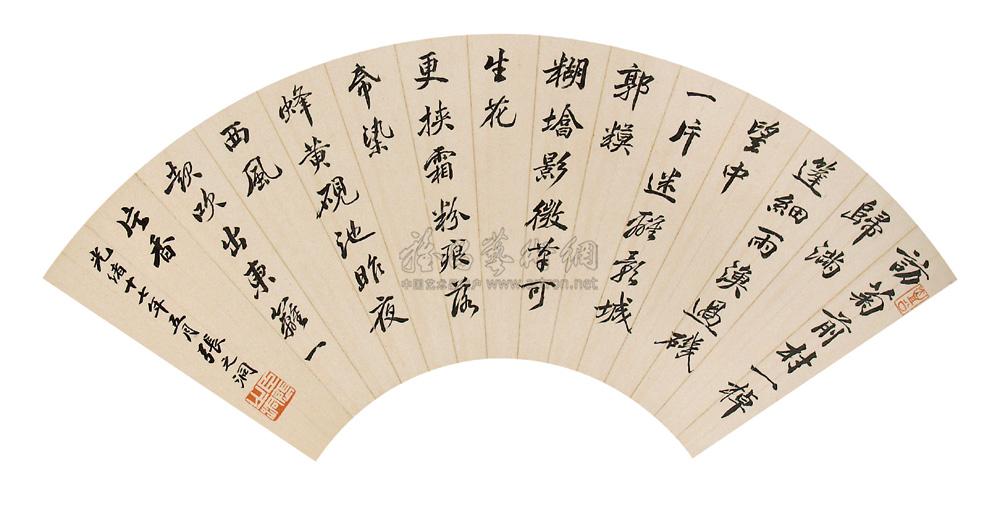 訪菊前村一棹
歸滿
篷細雨過磯
望中
一片迷離城
郭糢
糊墻影微茫可
生花
更挾霜粉痕落
染
蜂黃硯池昨夜
西風
吹出東籬一
香
光緒十七年五月張之洞
雅昌藝術網
中国艺术品门户 www.artron.net